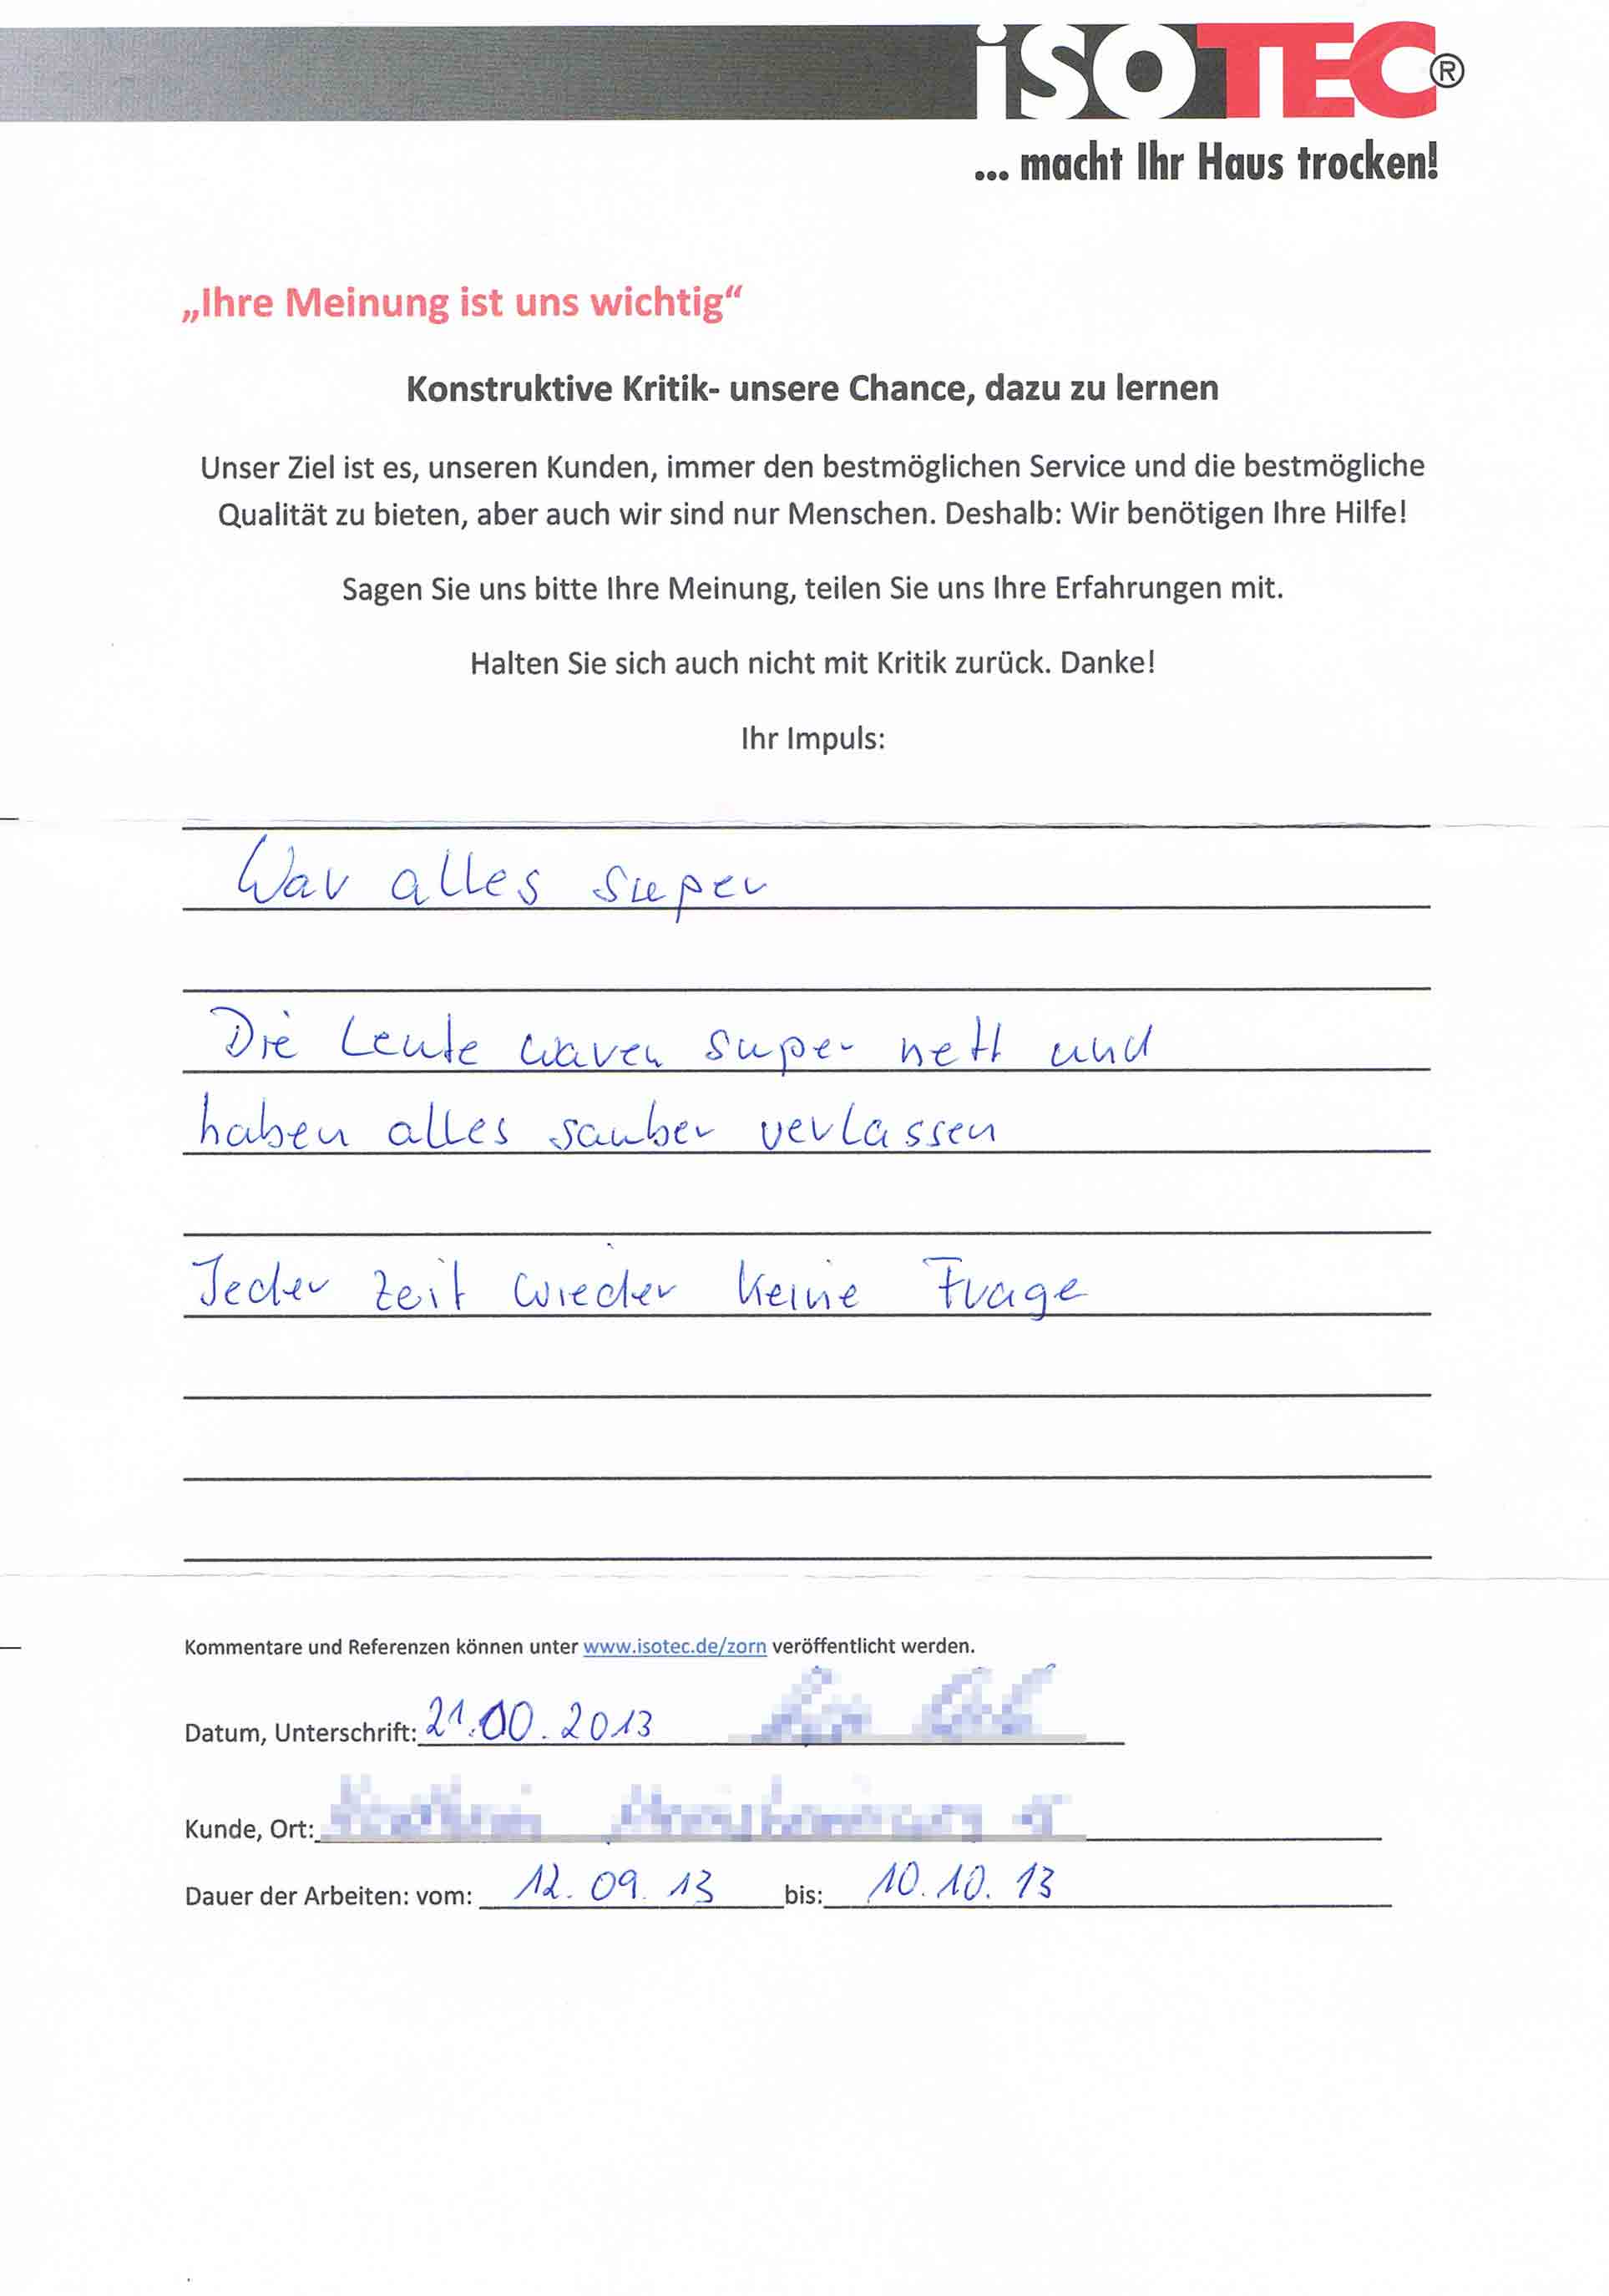 iSOTEC®
... macht Ihr Haus trocken!
„Ihre Meinung ist uns wichtig“
Konstruktive Kritik- unsere Chance, dazu zu lernen
Unser Ziel ist es, unseren Kunden, immer den bestmöglichen Service und die bestmögliche
Qualität zu bieten, aber auch wir sind nur Menschen. Deshalb: Wir benötigen Ihre Hilfe!
Sagen Sie uns bitte Ihre Meinung, teilen Sie uns Ihre Erfahrungen mit.
Halten Sie sich auch nicht mit Kritik zurück. Danke!
Ihr Impuls:
War alles super
Die Leute waren super nett und
haben alles sauber verlassen
Jeder zeit wieder keine Frage
Kommentare und Referenzen können unter www.isotec.de/zorn veröffentlicht werden.
Datum, Unterschrift: 21.00.2013
Kunde, Ort:
Dauer der Arbeiten: vom: 12.09.13 bis: 10.10.13